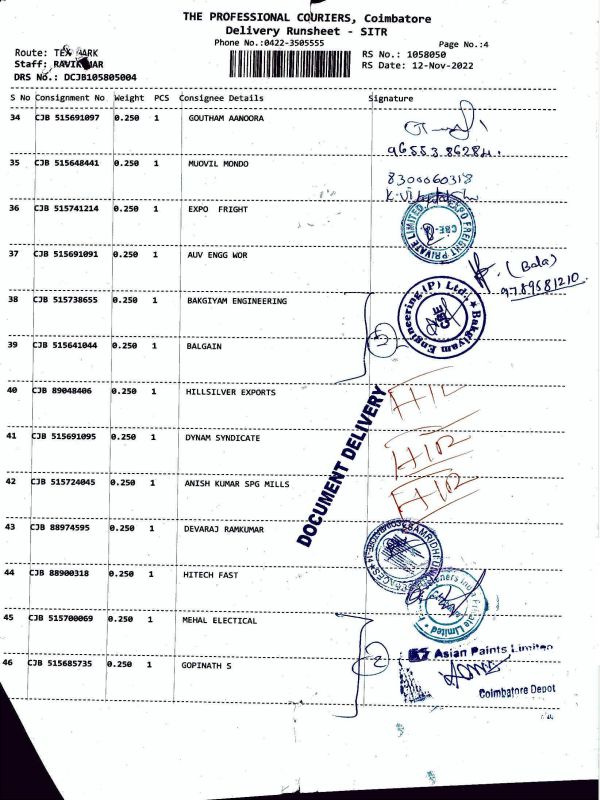 THE PROFESSIONAL COURIERS, Coimbatore
Delivery Runsheet - SITR
Phone No.:0422-3505555
Page No.:4
Route: TEX PARK
RS No.: 1058050
Staff: RAVIKUMAR
RS Date: 12-Nov-2022
DRS No.: DCJB105805004
S No Consignment No Weight PCS Consignee Details Signature
34 CJB 515691097 0.250 1 GOUTHAM AANOORA
9655386284
35 CJB 515648441 0.250 1 MUOVIL MONDO
8300060318
36 CJB 515741214 0.250 1 EXPO FRIGHT
EXPO FREIGHT PRIVATE LIMITED CBE
37 CJB 515691091 0.250 1 AUV ENGG WOR
(Bala)
9789581210
38 CJB 515738655 0.250 1 BAKGIYAM ENGINEERING
Bakgiyam Engineering (P) Ltd. CBE
39 CJB 515641044 0.250 1 BALGAIN
40 CJB 89048406 0.250 1 HILLSILVER EXPORTS
DOCUMENT DELIVERY
41 CJB 515691095 0.250 1 DYNAM SYNDICATE
42 CJB 515724045 0.250 1 ANISH KUMAR SPG MILLS
43 CJB 88974595 0.250 1 DEVARAJ RAMKUMAR
44 CJB 88900318 0.250 1 HITECH FAST
Private Limited
45 CJB 515700069 0.250 1 MEHAL ELECTICAL
2
Asian Paints Limited
46 CJB 515685735 0.250 1 GOPINATH S
Coimbatore Depot